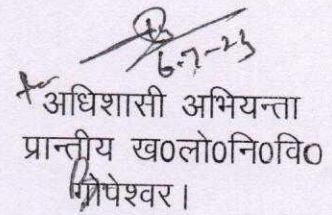 6-7-23
अधिशासी अभियन्ता
प्रान्तीय ख0लो0नि0वि0
गोपेश्वर।